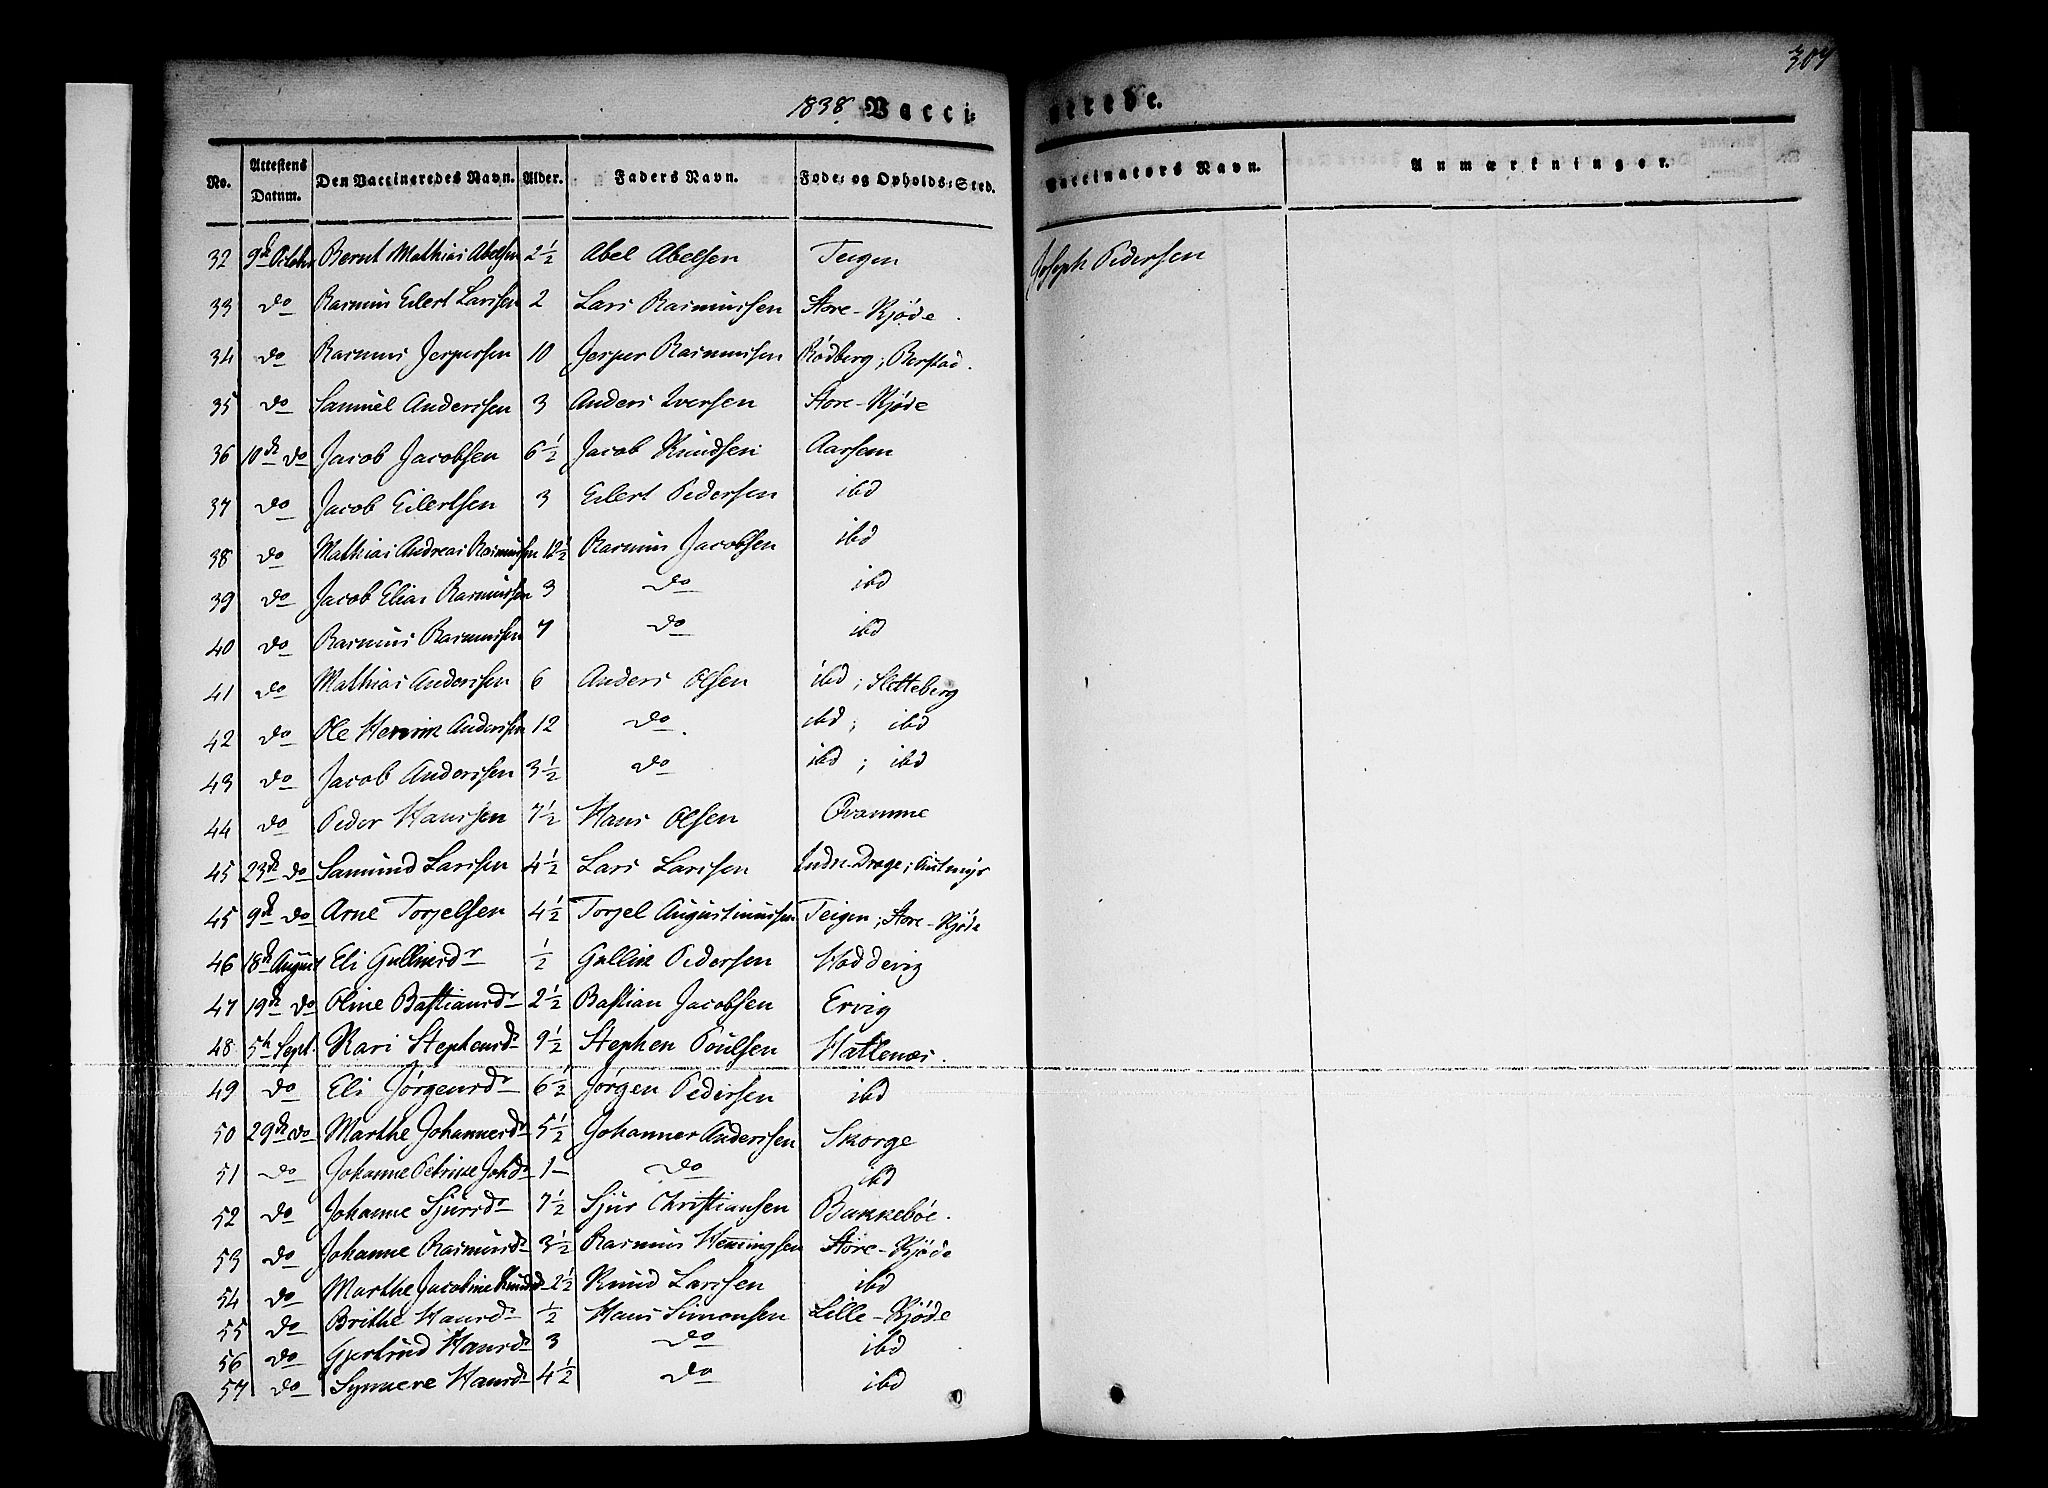 307
1838. Vacci-
nerede.
No. Attestens Datum. Den Vaccineredes Navn. Alder. Faders Navn. Føde- og Opholds-Sted. Vaccinators Navn. Anmærkninger.
32 9de Octobr Bernt Mathias Abelsen 2½ Abel Abelsen Teigen Joseph Pedersen
33 do Rasmus Eilert Larssen 2 Lars Rasmussen Store-Kjøde
34 do Rasmus Jespersen 10 Jesper Rasmussen Rødberg; Berstad.
35 do Samuel Anderssen 3 Anders Iversen Store-Kjøde
36 10de do Jacob Jacobsen 6½ Jacob Knudsen Aarsem
37 do Jacob Eilertsen 3 Eilert Pedersen ibd
38 do Mathias Andreas Rasmussen 12½ Rasmus Jacobsen ibd
39 do Jacob Elias Rasmussen 3 do ibd
40 do Rasmus Rasmussen 7 do ibd
41 do Mathias Anderssen 6 Anders Olsen ibd; Sletteberg
42 do Ole Henrik Anderssen 12 do. ibd; ibd
43 do Jacob Anderssen 3½ do ibd; ibd
44 do Peder Hanssen 7½ Hans Olsen Qvamme
45 23de do Samund Larssen 4½ Lars Larssen Indre-Drage; Austmyr
45 9de do Arne Torjelsen 4½ Torjel Augustinussen Teigen; Store-Kjøde
46 18de August Eli Gulliksdr ½ Gullik Pedersen Hoddevig
47 19de do Oline Bastiansdr 2½ Bastian Jacobsen Ervig
48 5te Sept. Kari Stephensdr 9½ Stephen Poulsen Hatlenæs.
49 do Eli Jørgensdr 6½ Jørgen Pedersen ibd
50 29de do Marthe Johannesdr 5½ Johannes Anderssen Skorge
51 do Johanne Petrikke Johdr 1 - do ibd
52 do Johanne Sjursdr 7½ Sjur Christiansen Bakkebøe.
53 do Johanne Rasmusdr 3½ Rasmus Hemingsen Store-Kjøde
54 do Marthe Jacobine Knudsd 2½ Knud Larssen ibd
55 do Brithe Hansdr ½ Hans Simonsen Lille-Kjøde
56 do Gjertrud Hansdr 3 do ibd
57 do Synneve Hansdr 4½ do ibd